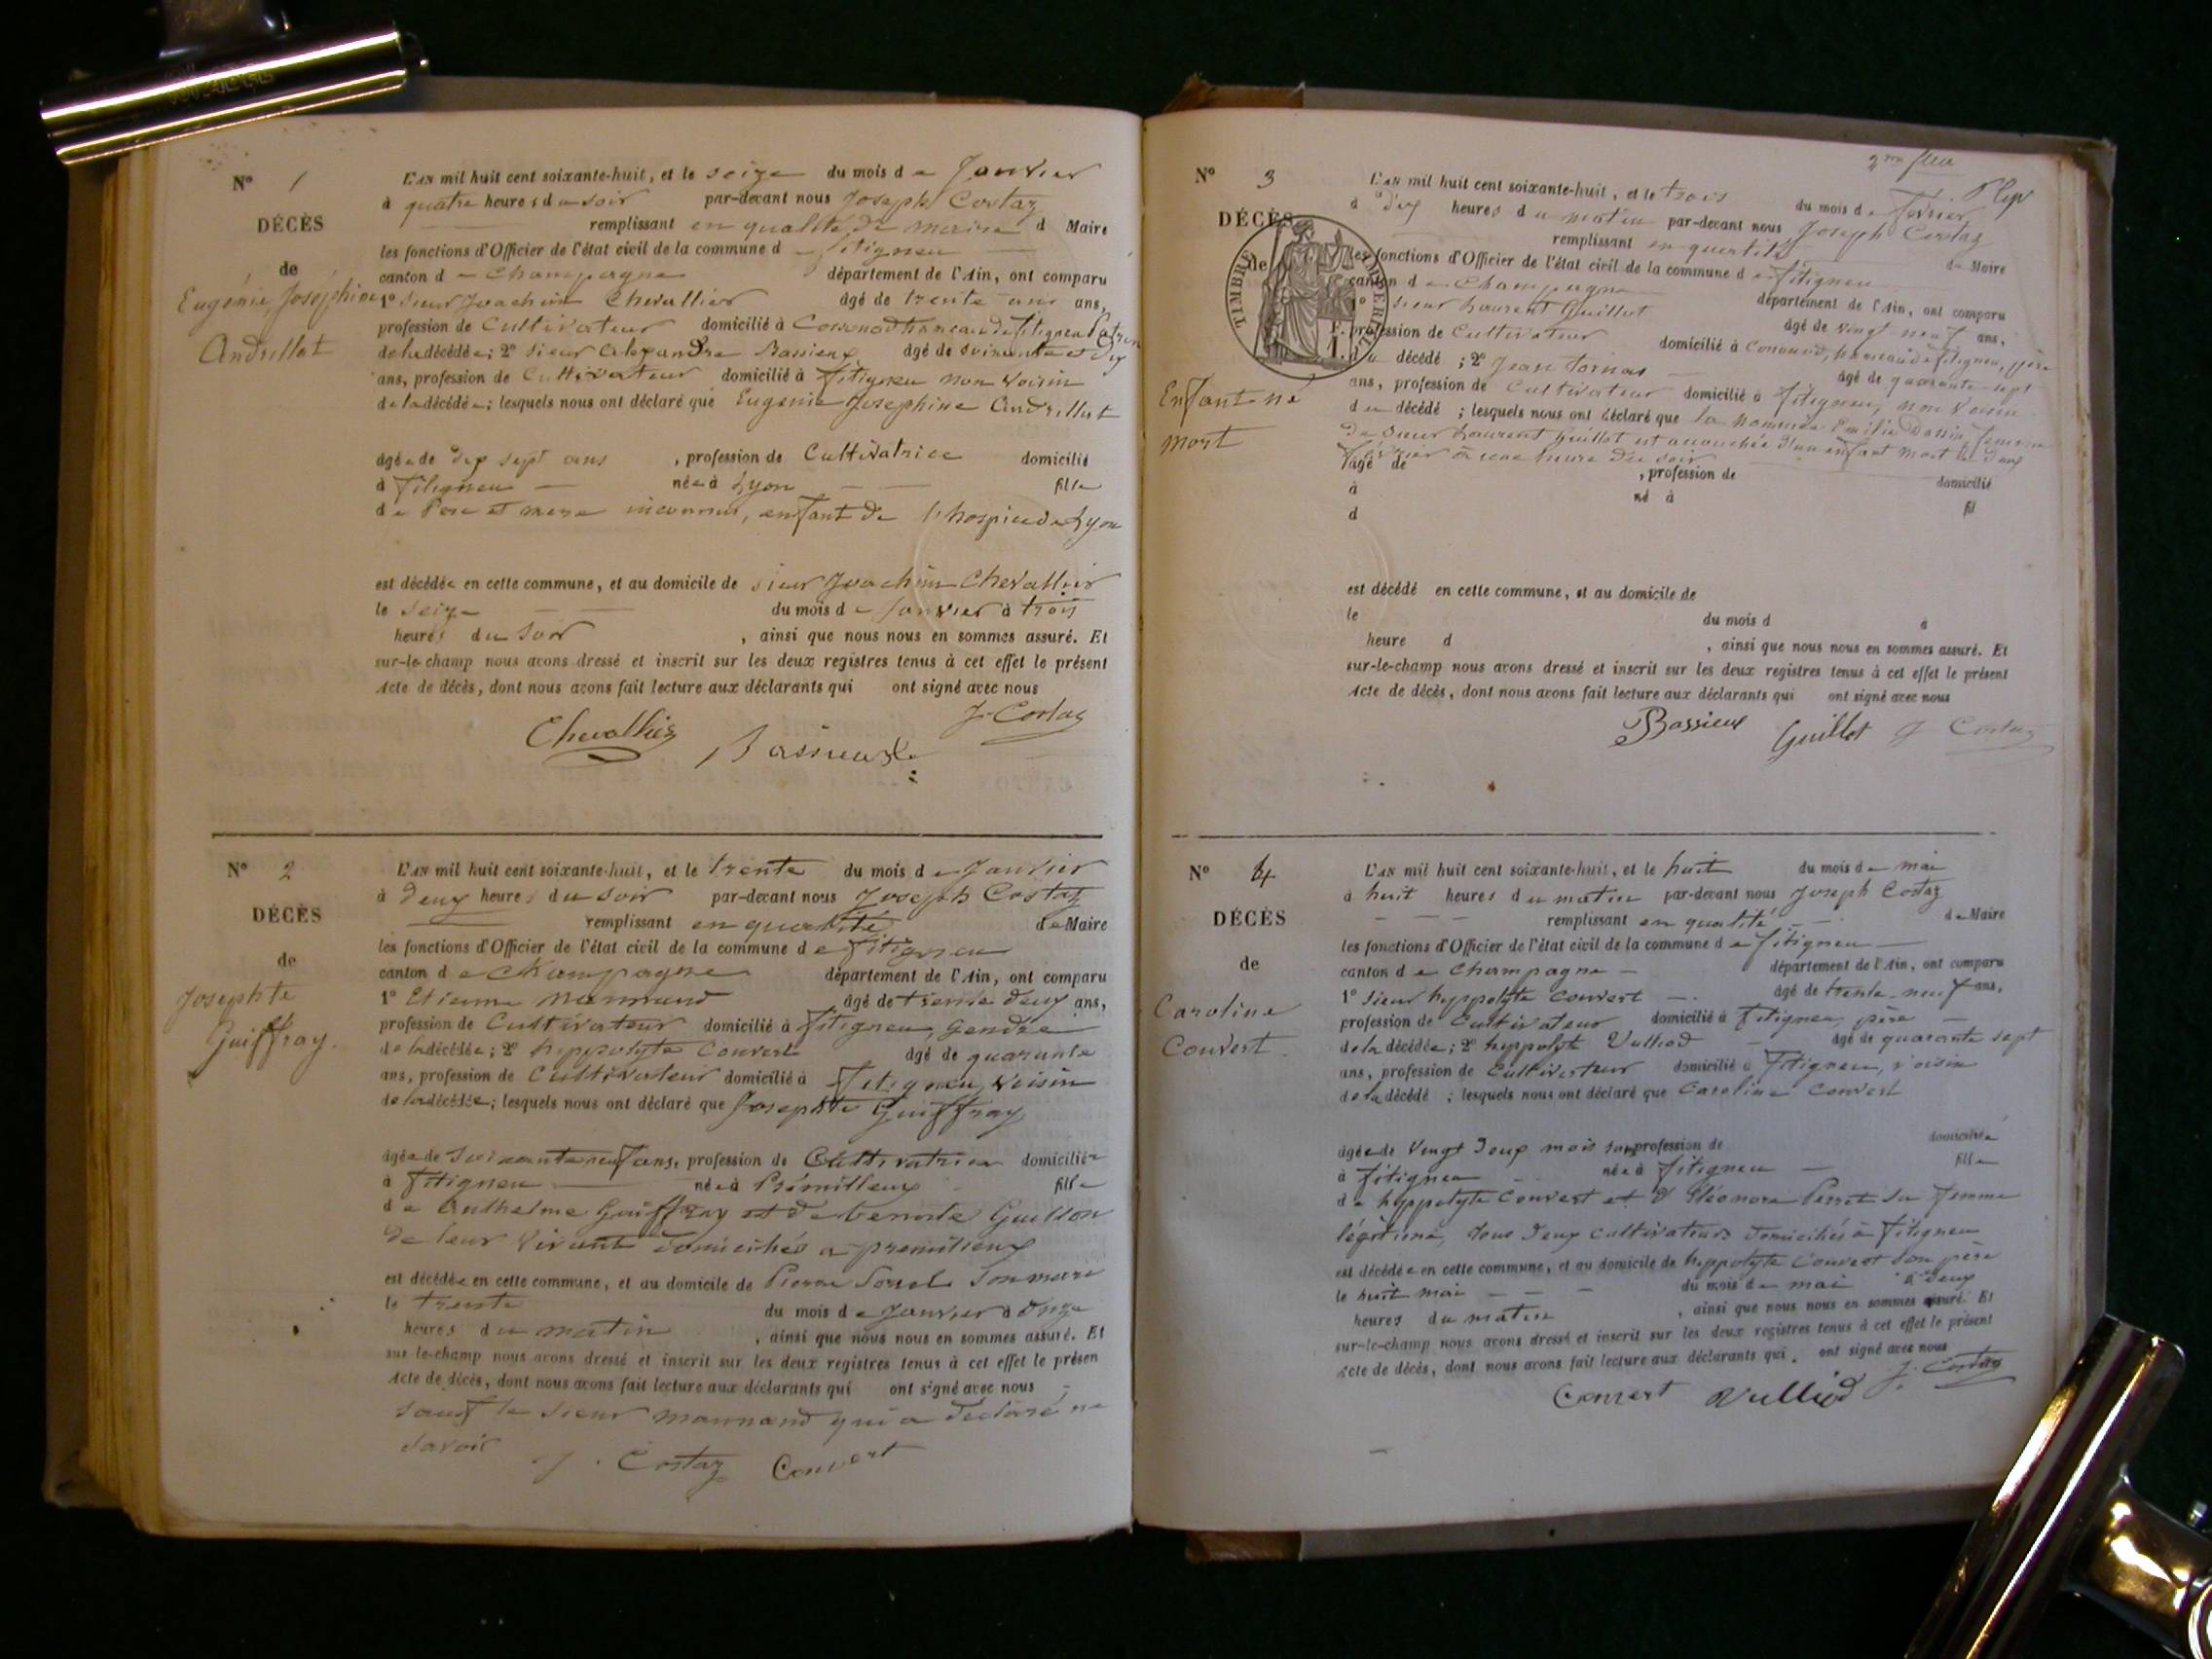 N° 1
DÉCÈS
de
Eugénie, Joséphine
Andrillat
L'AN mil huit cent soixante-huit, et le seize du mois de Janvier
à quatre heures du soir par-devant nous Joseph Costaz
remplissant en qualité de maire d Maire
les fonctions d'Officier de l'état civil de la commune de fitigneu
canton de Champagne département de l'Ain, ont comparu
1° sieur Joachim Chevallier âgé de trente ans ans,
profession de Cultivateur domicilié à hameau de fitigneu
de la décédée; 2° sieur alexandre Bassieux âgé de soixante et dix
ans, profession de Cultivateur domicilié à fitigneu non voisin
de la décédée; lesquels nous ont déclaré que Eugenie Josephine andrillat
âgée de dix sept ans, profession de Cultivatrice domicilié
à fitigneu née à Lyon fille
de Pere et mere inconnus, enfant de l'hospice de Lyon
est décédée en cette commune, et au domicile de sieur Joachim Chevallier
le seize du mois de Janvier à trois
heures du soir, ainsi que nous nous en sommes assuré. Et
sur-le-champ nous avons dressé et inscrit sur les deux registres tenus à cet effet le présent
Acte de décès, dont nous avons fait lecture aux déclarants qui ont signé avec nous
J. Costaz
Chevallier Bassieux
N° 2
DÉCÈS
de
Josephte
Guiffray.
L'AN mil huit cent soixante-huit, et le trente du mois de Janvier
à deux heures du soir par-devant nous Joseph Costaz
remplissant en qualité de Maire
les fonctions d'Officier de l'état civil de la commune de Fitigneu
canton de Champagne département de l'Ain, ont comparu
1° Etienne Mannand âgé de trente deux ans,
profession de Cultivateur domicilié à fitigneu, Gendre
de la décédée; 2° hyppolyte Convert âgé de quarante
ans, profession de Cultivateur domicilié à Fitigneu, Voisin
de la décédée; lesquels nous ont déclaré que Josephte Guiffray
âgée de soixante neuf ans, profession de Cultivatrice domiciliée
à Fitigneu née à Prémillieux fille
de Anthelme Guiffray et de benoite Guillon
de leur vivant domiciliés a premilieux
est décédée en cette commune, et au domicile de Pierre son mari
le trente du mois de Janvier à onze
heures du matin, ainsi que nous nous en sommes assuré. Et
sur-le-champ nous avons dressé et inscrit sur les deux registres tenus à cet effet le présen
Acte de décès, dont nous avons fait lecture aux déclarants qui ont signé avec nous
sauf le sieur mannand qui a déclaré ne
savoir
J. Costaz Convert
2me
N° 3
DÉCÈS
de
TIMBRE IMPERIAL
Enfant né
mort
L'AN mil huit cent soixante-huit, et le trois du mois de février
à dix heures du matin par-devant nous Joseph Costaz
remplissant en qualité de Maire
les fonctions d'Officier de l'état civil de la commune de fitigneu
canton de Champagne département de l'Ain, ont comparu
1° sieur Laurent Guillot âgé de vingt neuf ans,
profession de Cultivateur domicilié à hameau de fitigneu, père
du décédé; 2° Jean Tornas âgé de quarante-sept
ans, profession de Cultivateur domicilié à fitigneu, non Voisin
du décédé; lesquels nous ont déclaré que la nommée Emilie femme
de sieur Laurent Guillot est accouchée d'un enfant mort le deux
février à une heure du soir
âgé de, profession de domicilié
à né à fil
d
est décédé en cette commune, et au domicile de
le du mois d à
heure d, ainsi que nous nous en sommes assuré. Et
sur-le-champ nous avons dressé et inscrit sur les deux registres tenus à cet effet le présent
Acte de décès, dont nous avons fait lecture aux déclarants qui ont signé avec nous
Bassieux Guillot J Costaz
N° 4
DÉCÈS
de
Caroline
Convert.
L'AN mil huit cent soixante-huit, et le huit du mois de mai
à huit heures du matin par-devant nous Joseph Costaz
remplissant en qualité de Maire
les fonctions d'Officier de l'état civil de la commune de fitigneu
canton de Champagne département de l'Ain, ont comparu
1° sieur hyppolyte Convert âgé de trente-neuf ans,
profession de Cultivateur domicilié à Fitigneu, père
de la décédée; 2° hyppolyte Vulliod âgé de quarante sept
ans, profession de Cultivateur domicilié à Fitigneu, voisin
de la décédé; lesquels nous ont déclaré que Caroline Convert
âgée de Vingt deux mois profession de domiciliée
à fitigneu née à fitigneu fille
de hyppolyte Convert et d'Eléonore Perret sa femme
légitime, tous deux cultivateurs domiciliés à fitigneu
est décédée en cette commune, et au domicile de hyppolyte Convert son père
le huit mai du mois de mai à deux
heures du matin, ainsi que nous nous en sommes assuré. Et
sur-le-champ nous avons dressé et inscrit sur les deux registres tenus à cet effet le présent
Acte de décès, dont nous avons fait lecture aux déclarants qui ont signé avec nous
J. Costaz
Convert Vulliod